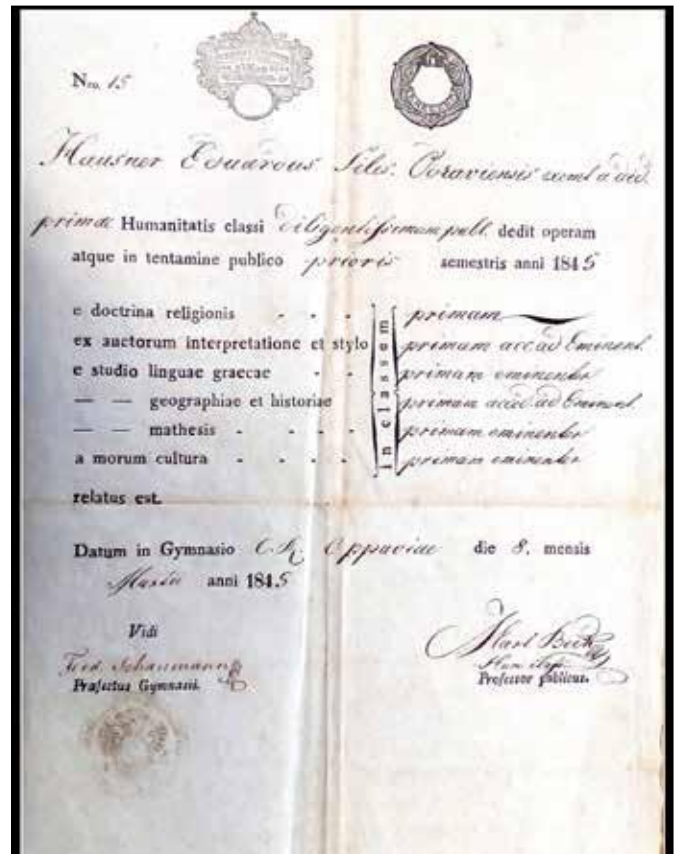 Nro. 15
Hausner Eduardus Siles. Oppaviensis
primae Humanitatis classi diligentissimam publ. dedit operam
atque in tentamine publico prioris semestris anni 1845
e doctrina religionis - - - primam
ex auctorum interpretatione et stylo primam acc. ad Eminent.
e studio linguae graecae - - primam eminenter
— — geographiae et historiae primam acced. ad Eminent.
— — mathesis - - - - primam eminenter
a morum cultura - - - - primam eminenter
in classem
relatus est.
Datum in Gymnasio C. R. Oppaviae die 8. mensis
Martii anni 1845
Vidi
Ferd. Schaumann
Praefectus Gymnasii.
Professor publicus.